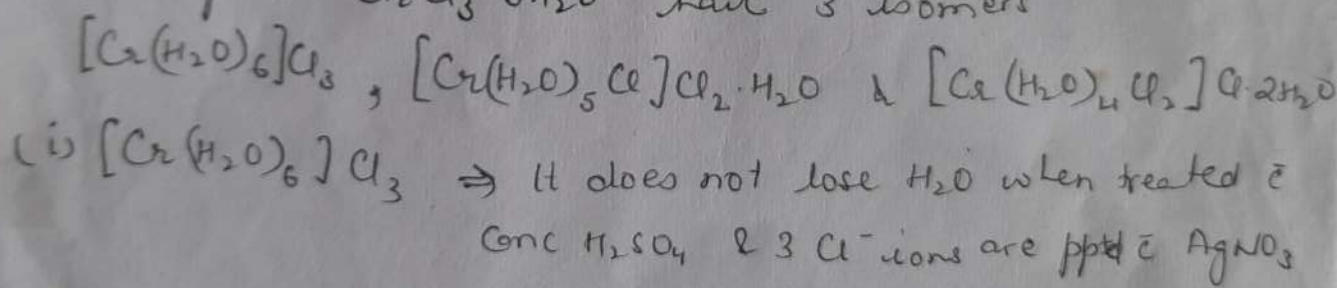 3 isomers
[Cr(H₂O)₆]Cl₃ , [Cr(H₂O)₅Cl]Cl₂.H₂O & [Cr(H₂O)₄Cl₂]Cl.2H₂O
(i) [Cr(H₂O)₆]Cl₃ ⇒ It does not lose H₂O when treated c̄
Conc H₂SO₄ & 3 Cl⁻ ions are pptd c̄ AgNO₃